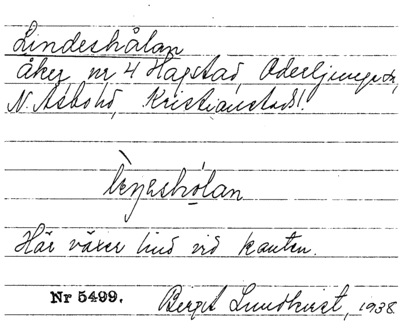 Lindeshålan
åker nr 4 Hagstad, Oderljunga sn,
N. Åsbo hd, Kristianstads l.
Här växer lind vid kanten.
Nr 5499. Bergit Lundkvist, 1938